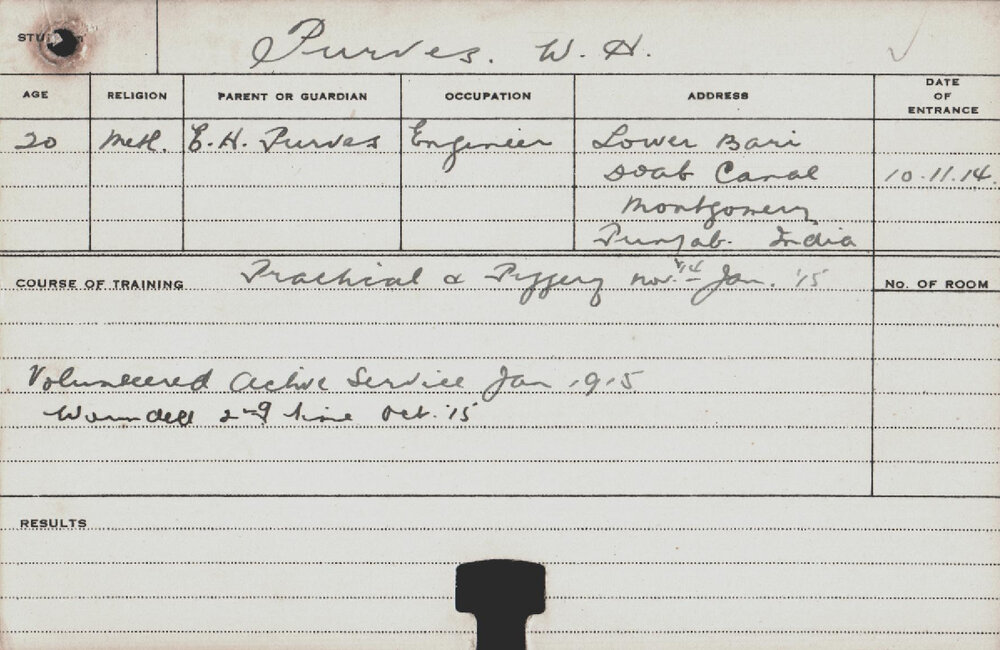 Purves. W. H.
AGE RELIGION PARENT OR GUARDIAN OCCUPATION ADDRESS DATE OF ENTRANCE
20 Meth. E. H. Purves Engineer Lower Bari
Doab Canal 10.11.14.
Montgomery
Punjab. India
COURSE OF TRAINING Practical & Piggery Nov. '14 - Jan. '15 No. OF ROOM
Volunteered Active Service Jan 1915
Wounded 2nd time Oct. '15
RESULTS